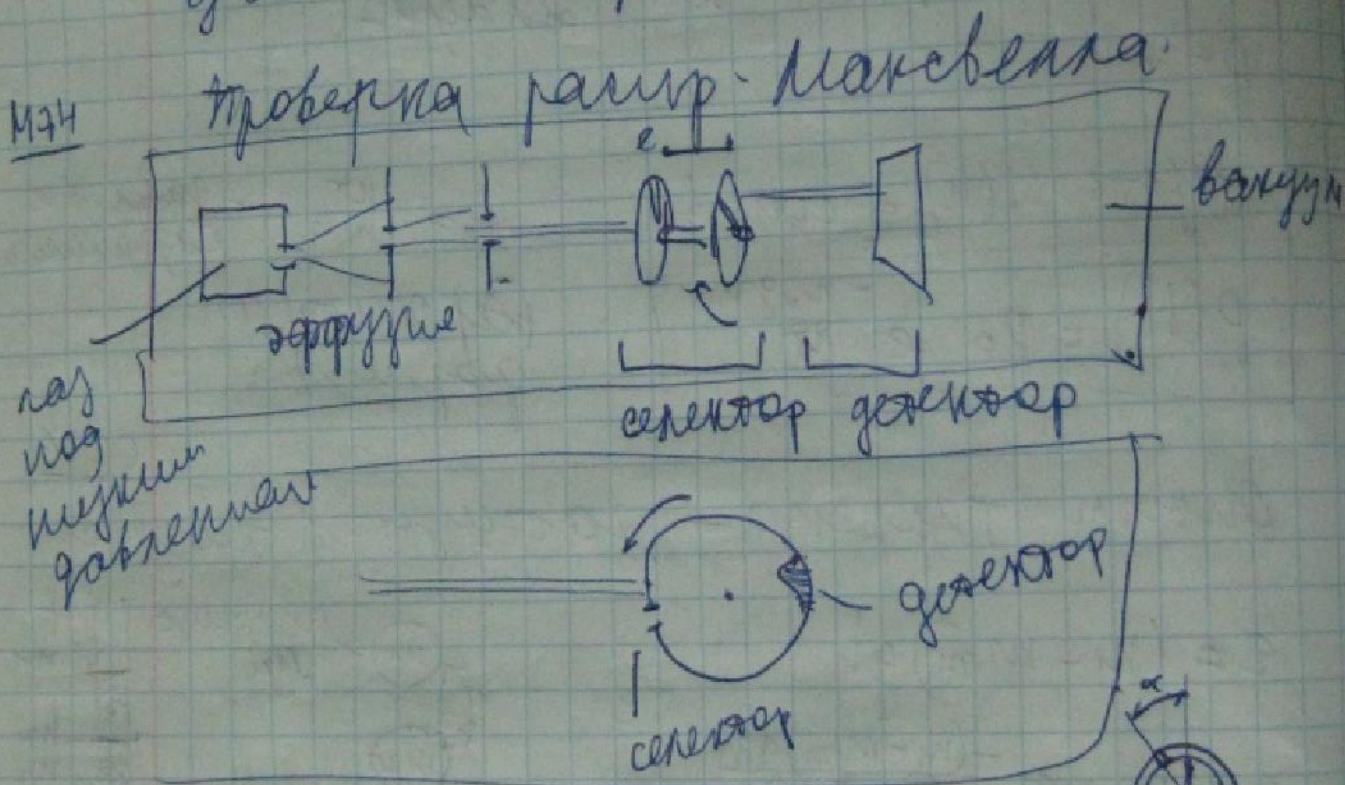 №74 Проверка распр. Максвелла.
l
вакуум
эффузия
газ
под
низким
давлением
селектор детектор
детектор
селектор
α